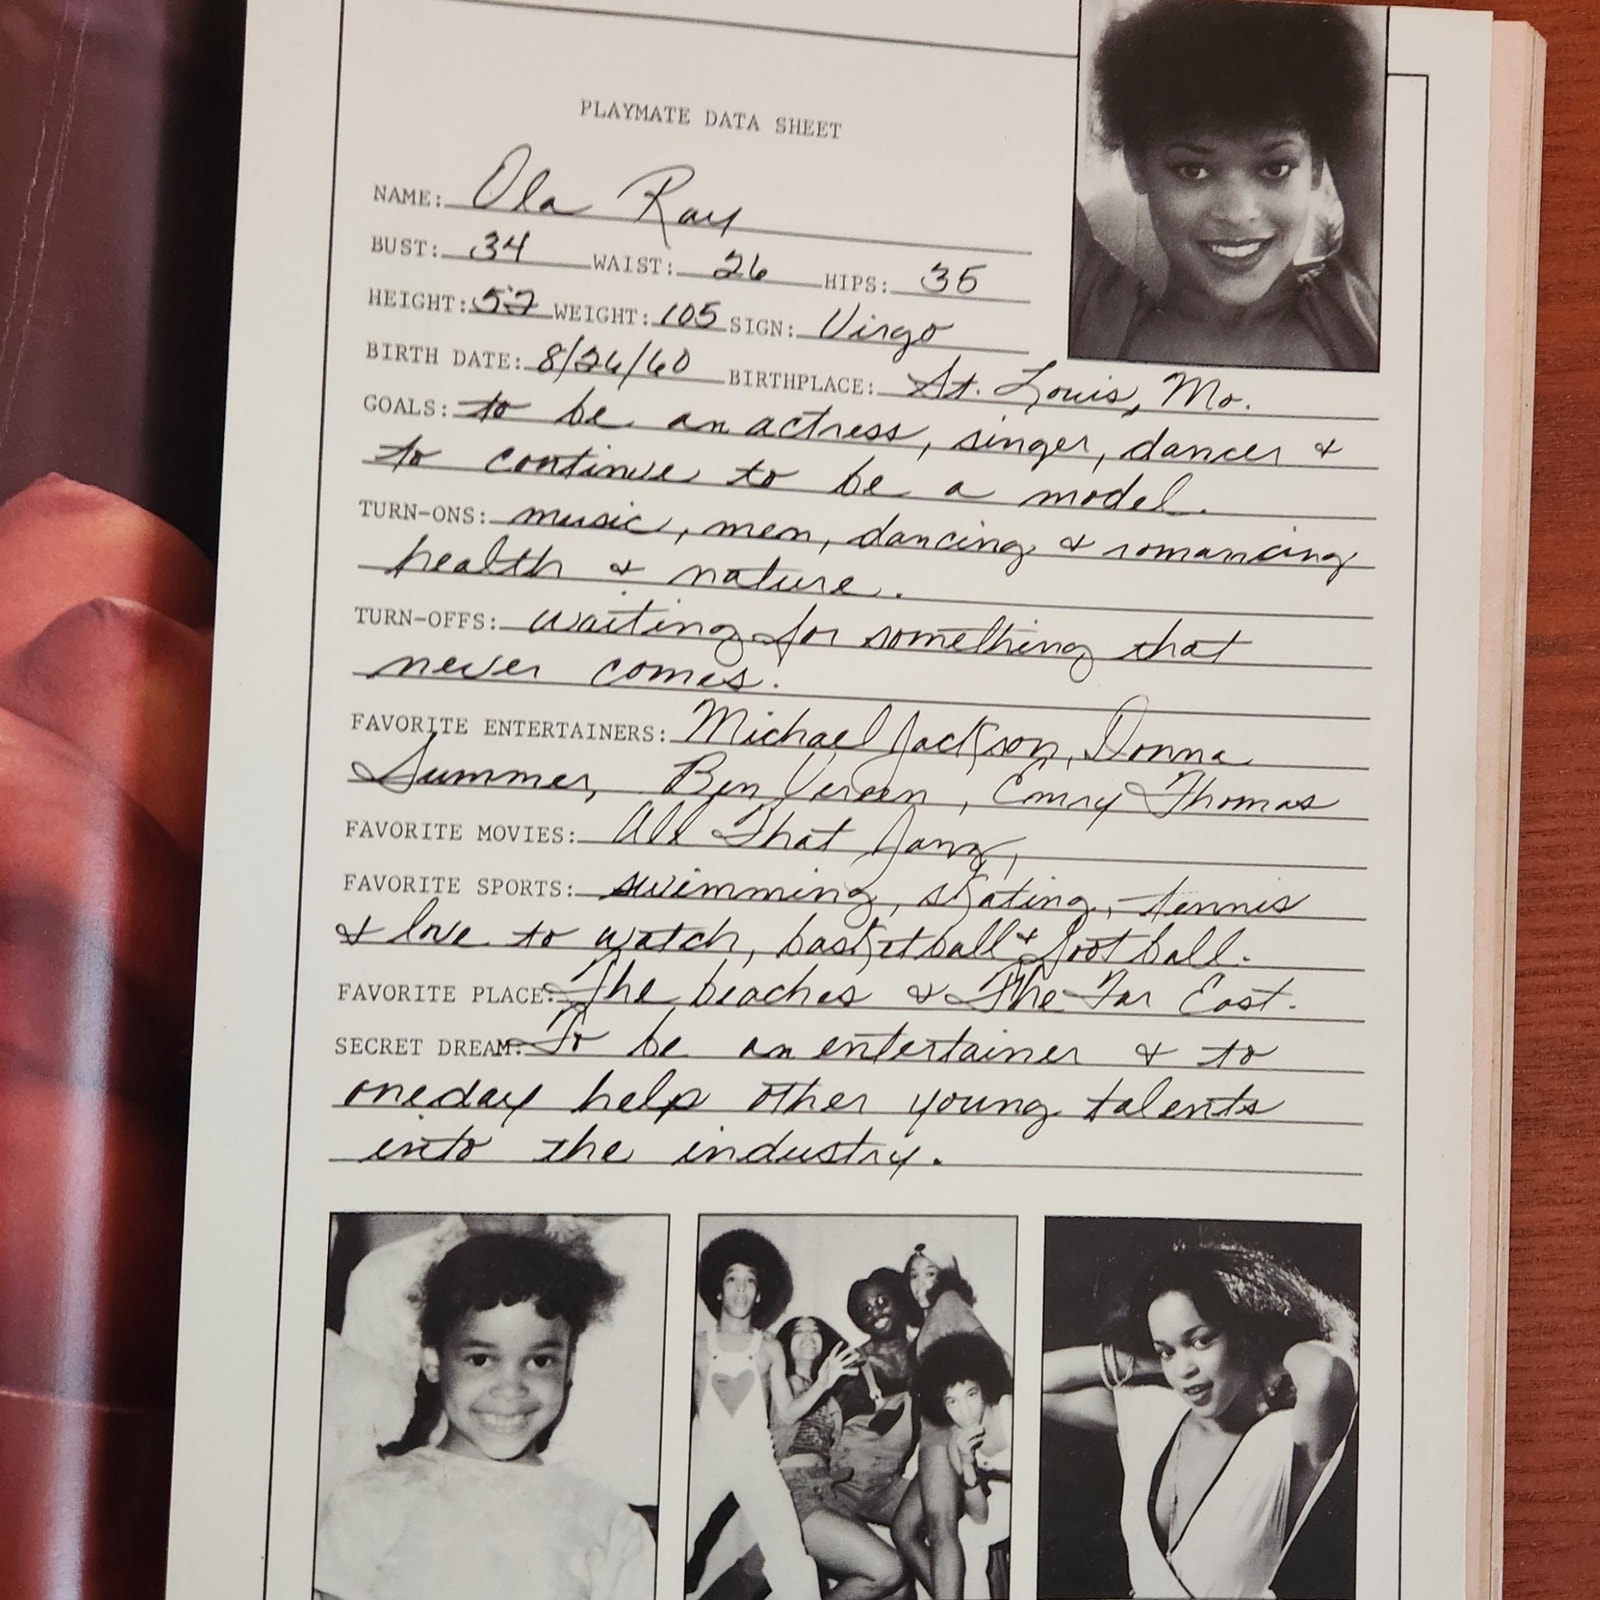 PLAYMATE DATA SHEET
NAME: Ola Ray
BUST: 34 WAIST: 26 HIPS: 35
HEIGHT: 52 WEIGHT: 105 SIGN: Virgo
BIRTH DATE: 8/26/60 BIRTHPLACE: St. Louis, Mo.
GOALS: to be an actress, singer, dancer &
to continue to be a model.
TURN-ONS: music, men, dancing & romancing
health & nature.
TURN-OFFS: waiting for something that
never comes.
FAVORITE ENTERTAINERS: Michael Jackson, Donna
Summer, Ben Vereen, Thomas
FAVORITE MOVIES: All That Jazz,
FAVORITE SPORTS: swimming, skating, tennis
& love to watch, basketball & football.
FAVORITE PLACE: The beaches & The Far East.
SECRET DREAM: To be an entertainer & to
oneday help other young talents
into the industry.